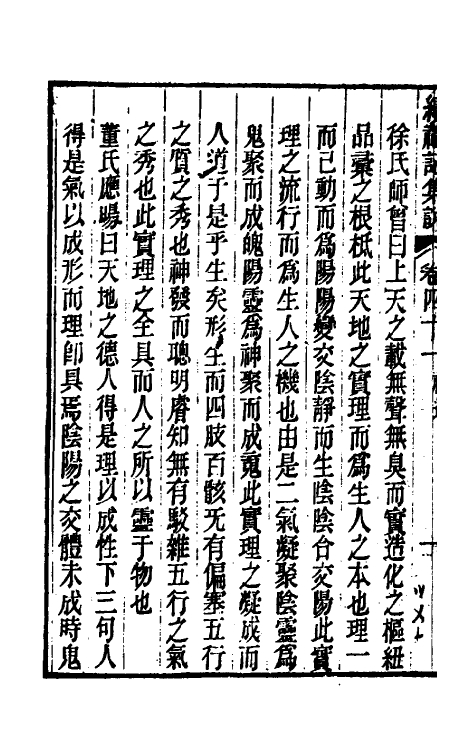 續禮記集說 卷四十一 禮運
徐氏師曾曰上天之載無聲無臭而實造化之樞紐
品彚之根柢此天地之實理而爲生人之本也理一
而已動而爲陽陽變交陰靜而生陰陰合交陽此實
理之流行而爲生人之機也由是二氣凝聚陰靈爲
鬼聚而成魄陽靈爲神聚而成䰟此實理之凝成而
人道于是乎生矣形生而四肢百骸旡有偏塞五行
之質之秀也神發而聰明睿知無有駁雜五行之氣
之秀也此實理之全具而人之所以靈于物也
董氏應暘曰天地之德人得是理以成性下三句人
得是氣以成形而理卽具焉陰陽之交體未成時鬼